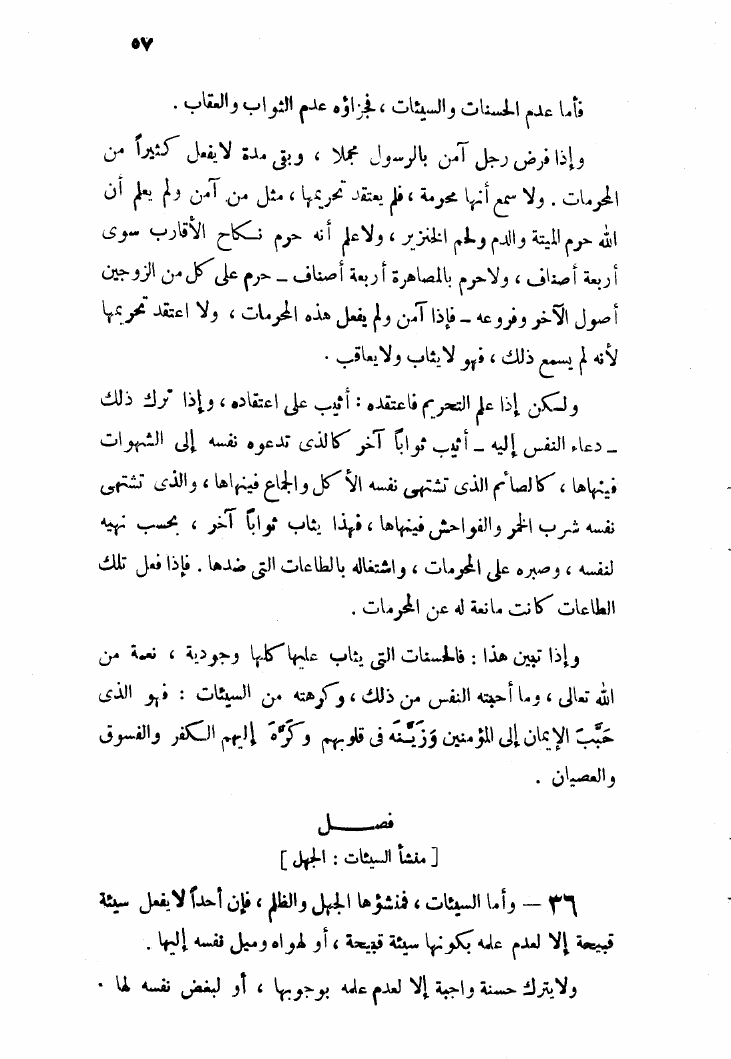 ٥٧
فأما عدم الحسنات والسيئات ، فجزاؤه عدم الثواب والعقاب .
وإذا فرض رجل آمن بالرسول مجملا ، وبقى مدة لا يفعل كثيراً من
المحرمات . ولا سمع أنها محرمة ، فلم يعتقد تحريمها ، مثل من آمن ولم يعلم أن
الله حرم الميتة والدم ولحم الخنزير ، ولا علم أنه حرم نكاح الأقارب سوى
أربعة أصناف ، ولا حرم بالمصاهرة أربعة أصناف ـ حرم على كل من الزوجين
أصول الآخر وفروعه ـ فإذا آمن ولم يفعل هذه المحرمات ، ولا اعتقد تحريمها
لأنه لم يسمع ذلك ، فهو لا يثاب ولا يعاقب .
ولكن إذا علم التحريم فاعتقده : أثيب على اعتقاده ، وإذا ترك ذلك
ـ دعاء النفس إليه ـ أثيب ثواباً آخر كالذى تدعوه نفسه إلى الشهوات
فينهاها ، كالصائم الذى تشتهى نفسه الأكل والجماع فينهاها ، والذى تشتهى
نفسه شرب الخمر والفواحش فينهاها ، فهذا يثاب ثواباً آخر ، بحسب نهيه
لنفسه ، وصبره على المحرمات ، واشتغاله بالطاعات التى ضدها . فإذا فعل تلك
الطاعات كانت مانعة له عن المحرمات .
وإذا تبين هذا : فالحسنات التى يثاب عليها كلها وجودية ، نعمة من
الله تعالى ، وما أحبته النفس من ذلك ، وكرهته من السيئات : فهو الذى
حَبَّبَ الإيمان إلى المؤمنين وَزَيَّنَه فى قلوبهم وكَرَّهَ إليهم الكفر والفسوق
والعصيان .
فصـــــل
[ منشأ السيئات : الجهل ]
٣٦ — وأما السيئات ، فمنشؤها الجهل والظلم ، فإن أحداً لا يفعل سيئة
قبيحة إلا لعدم علمه بكونها سيئة قبيحة ، أو لهواه وميل نفسه إليها .
ولا يترك حسنة واجبة إلا لعدم علمه بوجوبها ، أو لبغض نفسه لها .